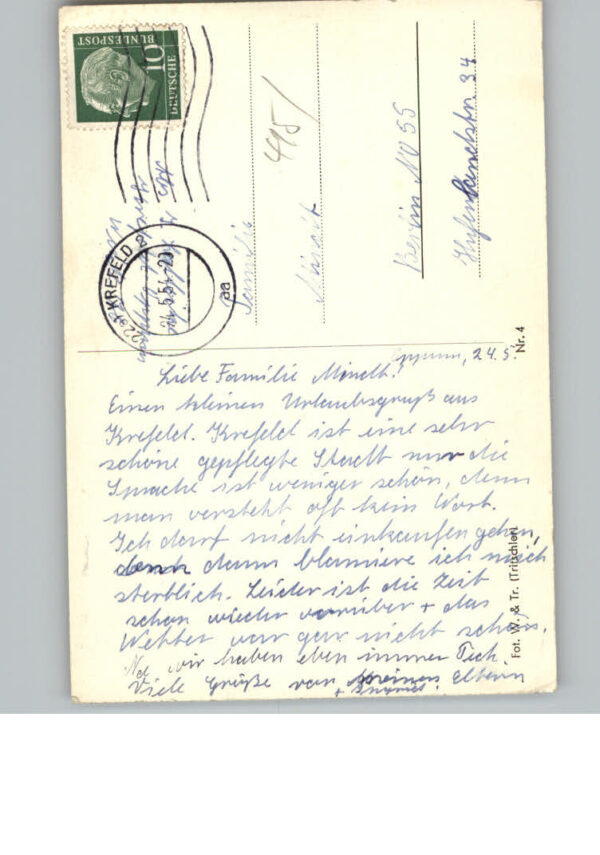 DEUTSCHE
BUNDESPOST
10
KREFELD 2
24.5.54-20
aa
415/
Familie
Berlin NO 55
34
Nr. 4
24.5.
Liebe Familie
Einen kleinen Urlaubsgruß aus
Krefeld. Krefeld ist eine sehr
schöne gepflegte Stadt nur die
Sprache ist weniger schön, denn
man versteht oft kein Wort.
Ich darf nicht einkaufen gehen,
denn dann blamiere ich mich
sterblich. Leider ist die Zeit
schon wieder vorüber + das
Wetter war gar nicht schön.
Na wir haben eben immer Pech.
Viele Grüße von meinen Eltern
+
Fot. W. & Tr. (Tritschler)